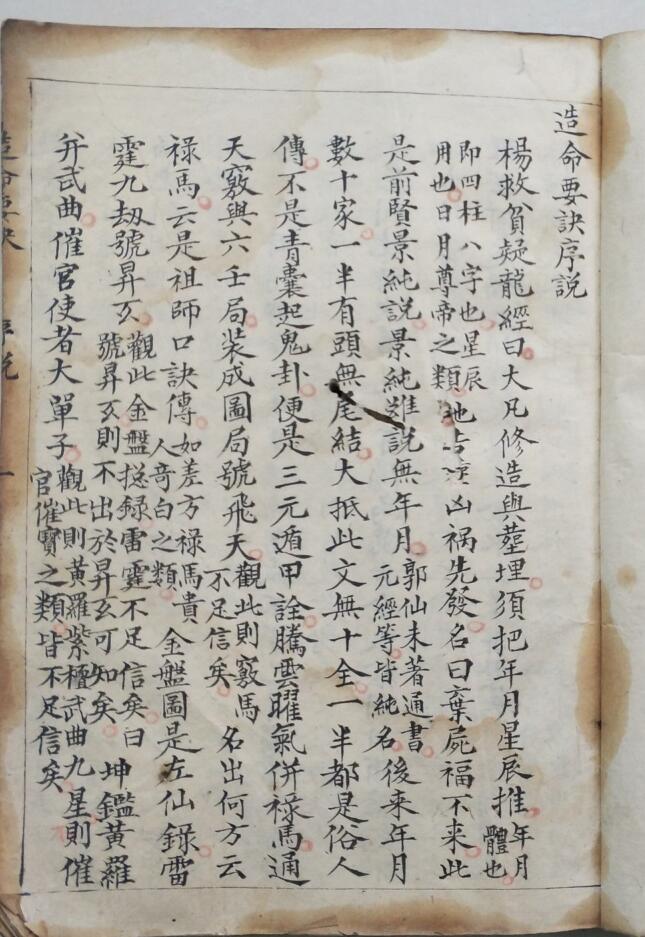 造命要訣序説
楊救貧疑龍經曰大凡修造與塟埋須把年月星辰推年月體也
即四柱八字也星辰用也日月尊帝之類地吉凶祸先發名曰棄屍福不来此
是前賢景純説景純雖説無年月郭仙未著通書元經等皆純名後来年月
數十家一半有頭無尾結大抵此文無十全一半都是俗人
傳不是青囊起鬼卦便是三元遁甲詮騰雲曜氣併祿馬通
天竅與六壬局装成圖局號飛天觀此則竅馬不足信矣名出何方云
祿馬云是祖師口訣傳如差方祿馬貴人竒白之類金盤圖是左仙錄雷
霆九刼號昇玄觀此金盤捴録雷霆不足信矣曰號昇玄則不出於昇玄可知矣坤鑑黄羅
并武曲催官使者大單子觀此則黄羅紫檀武曲九星則催官催寳之類皆不足信矣
造命要訣
序説
一